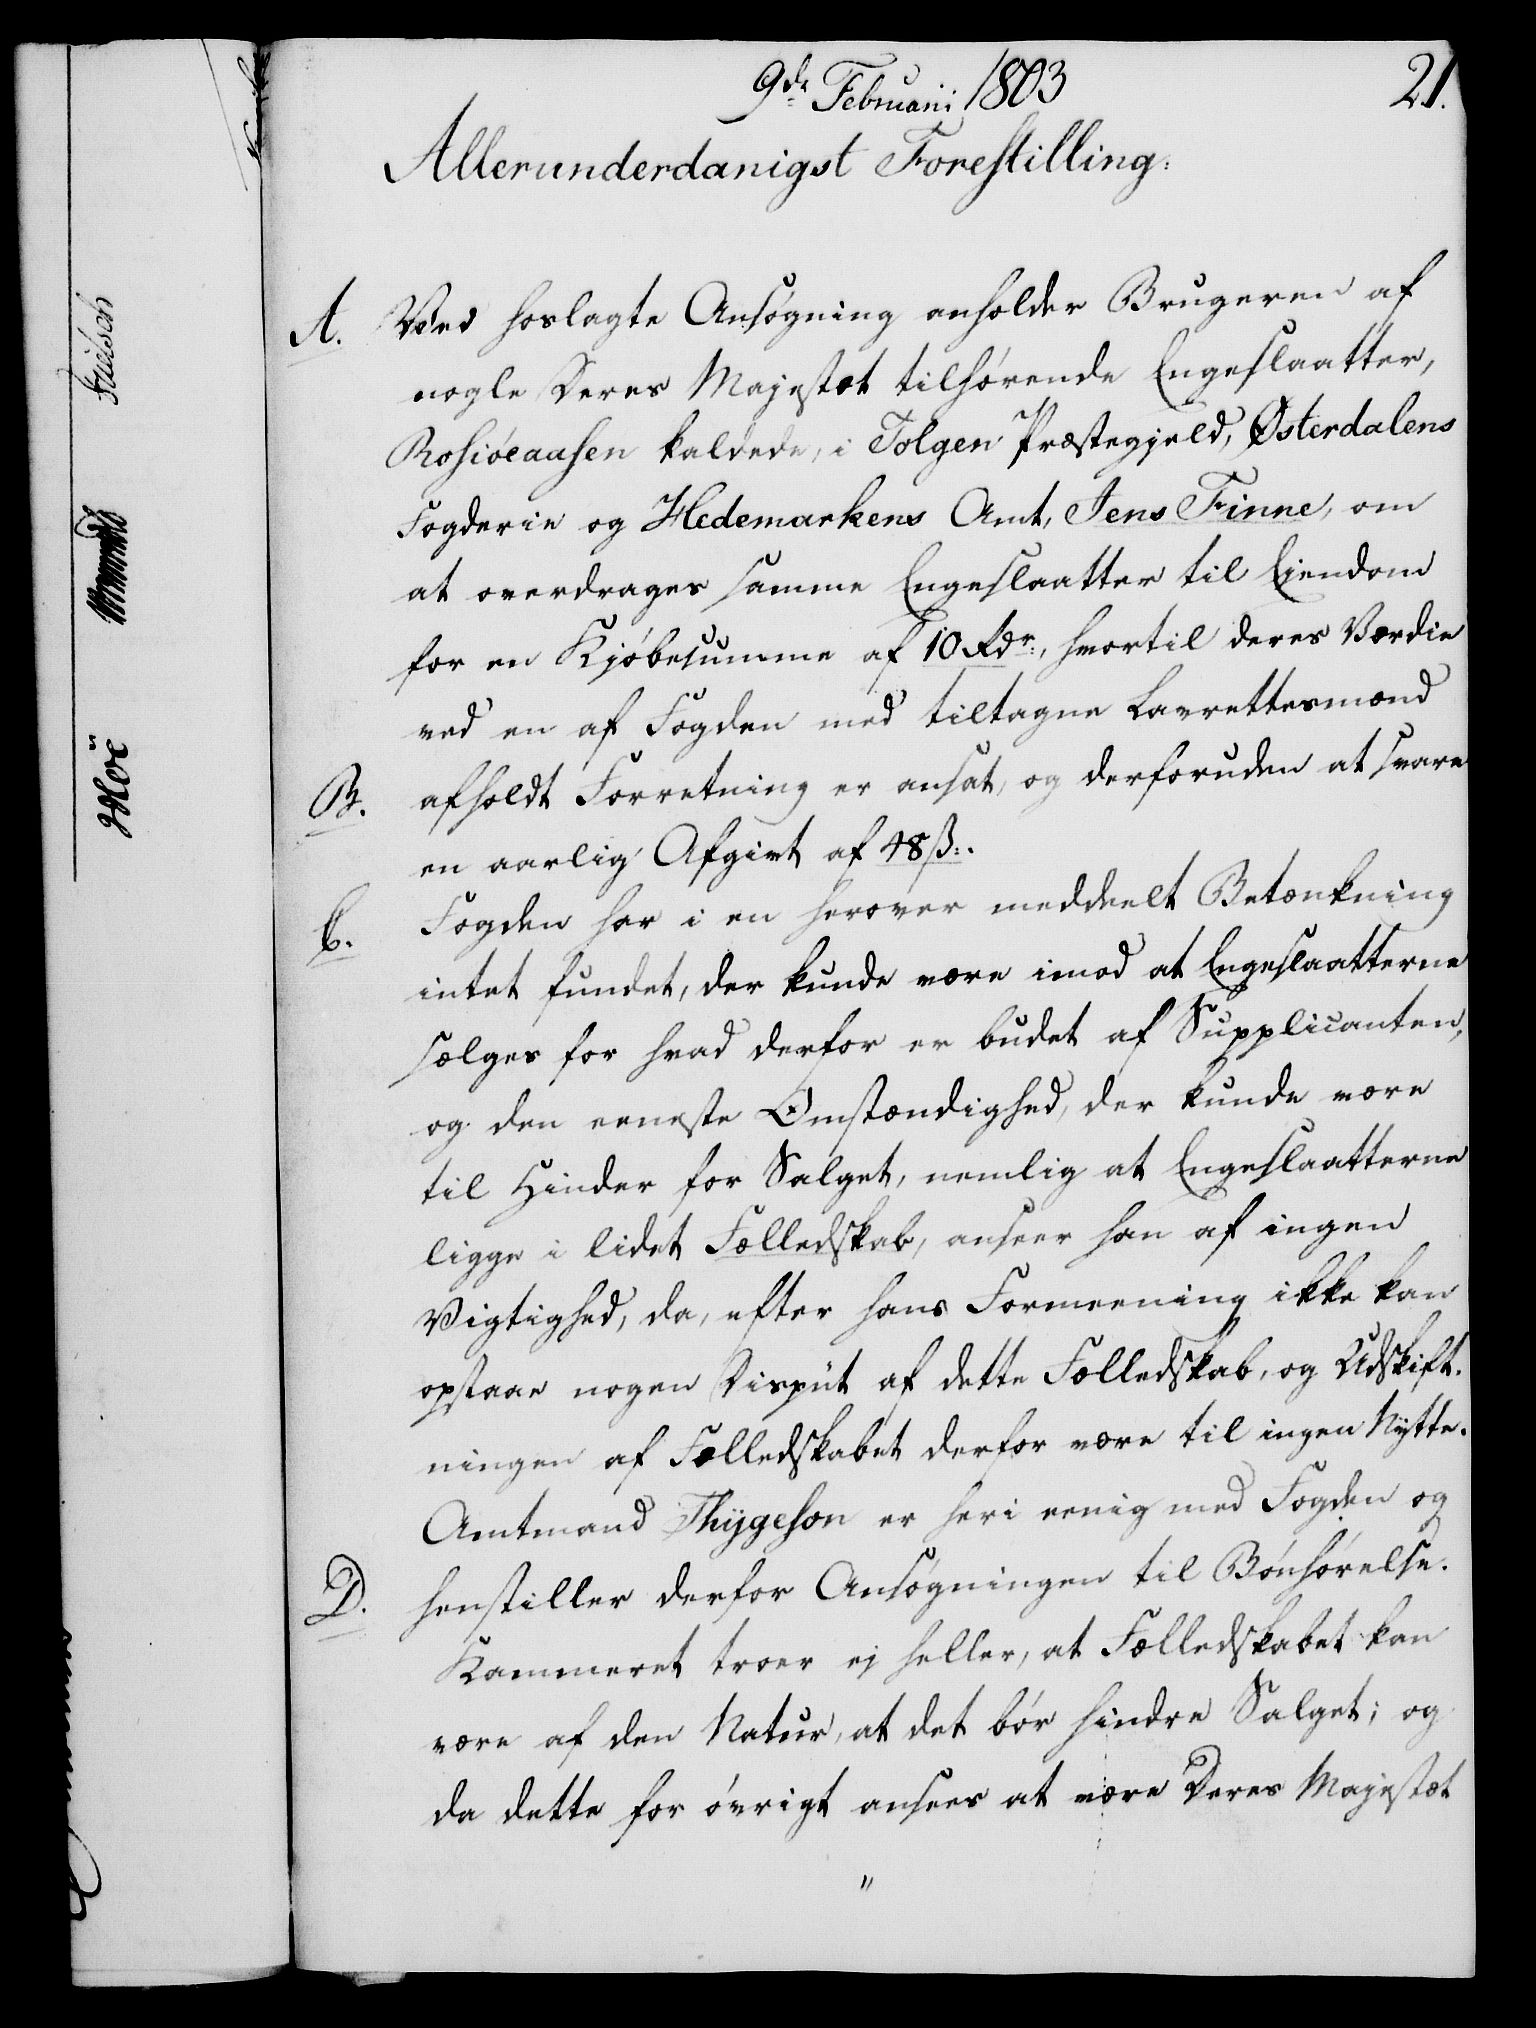 9de Februarii 1803
21.
Allerunderdanigst Forestilling:
A. Ved hoslagte Ansøgning anholder Brugeren af
nogle Deres Majestæt tilhørende Engeslaatter,
Rosiøeaasen kaldede, i Tolgen Præstegjeld, Østerdalens
Fogderie og Hedemarkens Amt, Jens Finne, om
at overdrages samme Engeslaatter til Eiendom
for en Kjøbesumme af 10 Rdr:, hvortil deres Værdie
ved en af Fogden med tiltagne Lavrettesmænd
B. afholdt Forretning er ansat, og derforuden at svare
en aarlig Afgivt af 48 ß:.
C. Fogden har i en herover meddeelt Betænkning
intet fundet, der kunde være imod at Engeslaatterne
sælges for hvad derfor er budet af Supplicanten,
og den eeneste Omstændighed, der kunde være
til Hinder for Salget, nemlig at Engeslaatterne
ligge i lidet Fælledskab, anseer han af ingen
Vigtighed, da, efter hans Formeening ikke kan
opstaae nogen Disput af dette Fælledskab, og Udskift-
ningen af Fælledskabet derfor være til ingen Nytte.
Amtmand Thygeson er heri eenig med Fogden og
D. henstiller derfor Ansøgningen til Bønhørelse.
Kammeret troer ej heller, at Fælledskabet kan
være af den Natur, at det bør hindre Salget; og
da dette for øvrigt ansees at være Deres Majestæt
"
Høe